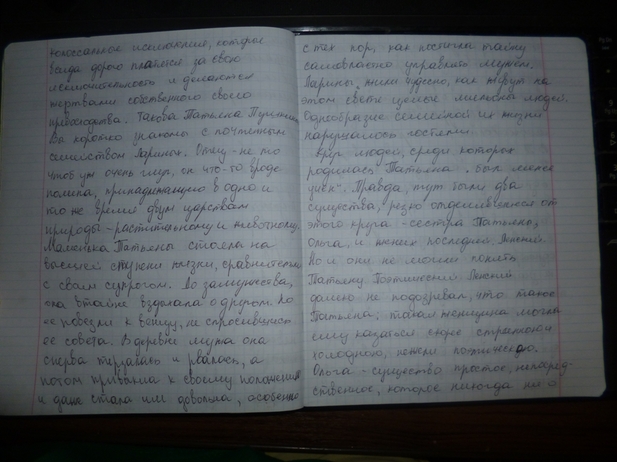 колоссальное исключение, которые
всегда дорого платят за свою
исключительность и делаются
жертвами собственного своего
превосходства. Такова Татьяна Пушкина.
Вы коротко знакомы с почтенным
семейством Лариных. Отец - не то
чтоб уж очень глуп, он что-то вроде
полипа, принадлежащего в одно и
то же время двум царствам
природы - растительному и животному.
Маменька Татьяны стояла на
высшей ступени жизни, сравнительно
с своим супругом. До замужества,
она втайне вздыхала о другом. Но
ее повезли к венцу, не спросившись
ее совета. В деревне мужа она
сперва терзалась и рвалась, а
потом привыкла к своему положению
и даже стала им довольна, особенно
с тех пор, как постигла тайну
самовластно управлять мужем.
Ларины жили чудесно, как живут на
этом свете целые мильоны людей.
Однообразие семейной их жизни
нарушалось гостями.
Круг людей, среди которых
родилась Татьяна, был
Правда, тут были два
существа, резко отделявшиеся от
этого круга - сестра Татьяны,
Ольга, и жених последней, Ленский.
Но и они не могли понять
Татьяну. Поэтический Ленский
далеко не подозривал, что такое
Татьяна; такая женщина могла
ему казаться скорее странной и
холодною, нежели поэтическою.
Ольга - существо простое, непосред-
ственное, которое никогда ни о